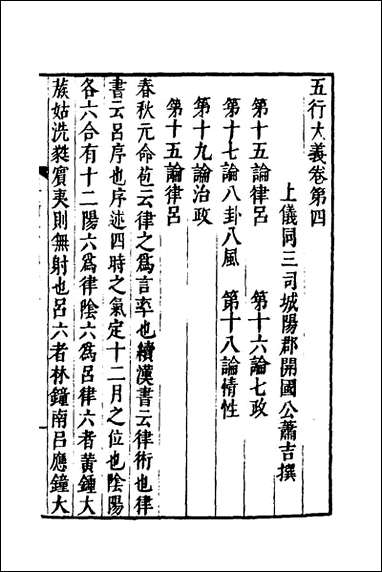 五行大義卷第四
上儀同三司城陽郡開國公蕭吉撰
第十五論律呂　第十六論七政
第十七論八卦八風　第十八論情性
第十九論治政
第十五論律呂
春秋元命苞云律之爲言率也續漢書云律術也律
書云呂序也序述四時之氣定十二月之位也陰陽
各六合有十二陽六爲律陰六爲呂律六者黃鍾大
蔟姑洗蕤賓夷則無射也呂六者林鐘南呂應鐘大